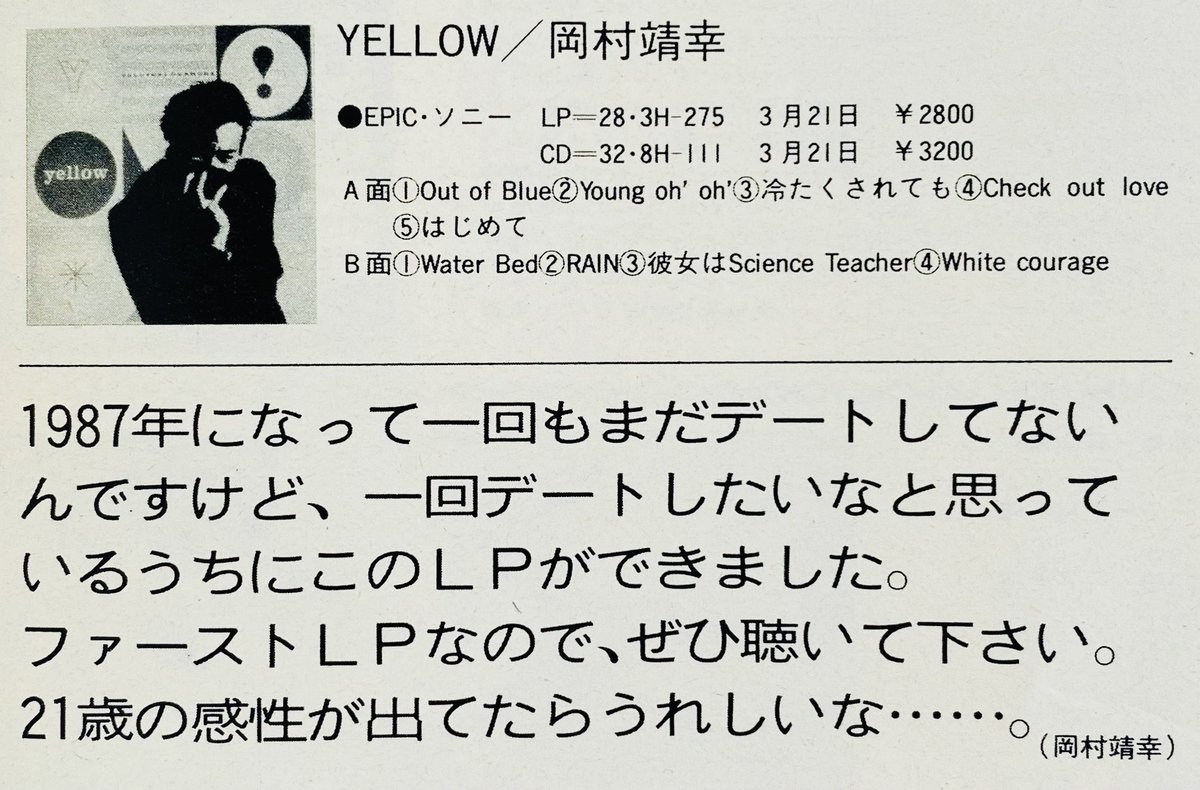 yellow
YELLOW／岡村靖幸
●EPIC・ソニー　LP=28・3H-275　3月21日　￥2800
CD=32・8H-111　3月21日　￥3200
A面①Out of Blue②Young oh' oh'③冷たくされても④Check out love
⑤はじめて
B面①Water Bed②RAIN③彼女はScience Teacher④White courage
1987年になって一回もまだデートしてない
んですけど、一回デートしたいなと思って
いるうちにこのＬＰができました。
ファーストＬＰなので、ぜひ聴いて下さい。
21歳の感性が出てたらうれしいな……。
（岡村靖幸）